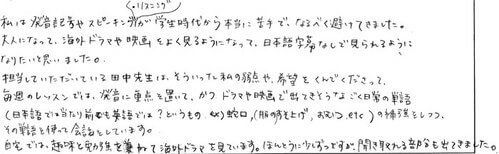 リスニング
私は発音記号やスピーキングが学生時代から本当に苦手で、なるべく避けてきました。
大人になって、海外ドラマや映画をよく見るようになって、日本語字幕なしで見られるように
なりたいと思いました。
担当していただいている田中先生は、そういった私の弱点や、希望をくんでくださって、
毎週のレッスンでは、発音に重点を置いて、かつ ドラマや映画で出てきそうなごく日常の単語
(日本語では当たり前でも英語では?というもの ex) 蛇口、(服の)そで、おむつ、etc) の補強をしつつ、
その単語を使って会話をしています。
自宅では、趣味と勉強を兼ねて海外ドラマを見ています。ほんとうに少しずつですが、聞き取れる部分も出てきました。